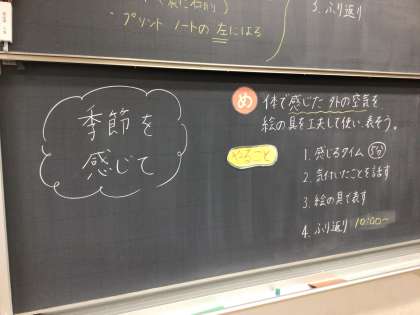 ・プリント ノートの左にはる
3. ふり返り
季節を
感じて
め 体で感じた外の空気を
絵の具を工夫して使い、表そう。
やること
1. 感じるタイム 5分
2. 気付いたことを話す
3. 絵の具で表す
4. ふり返り 10:00〜